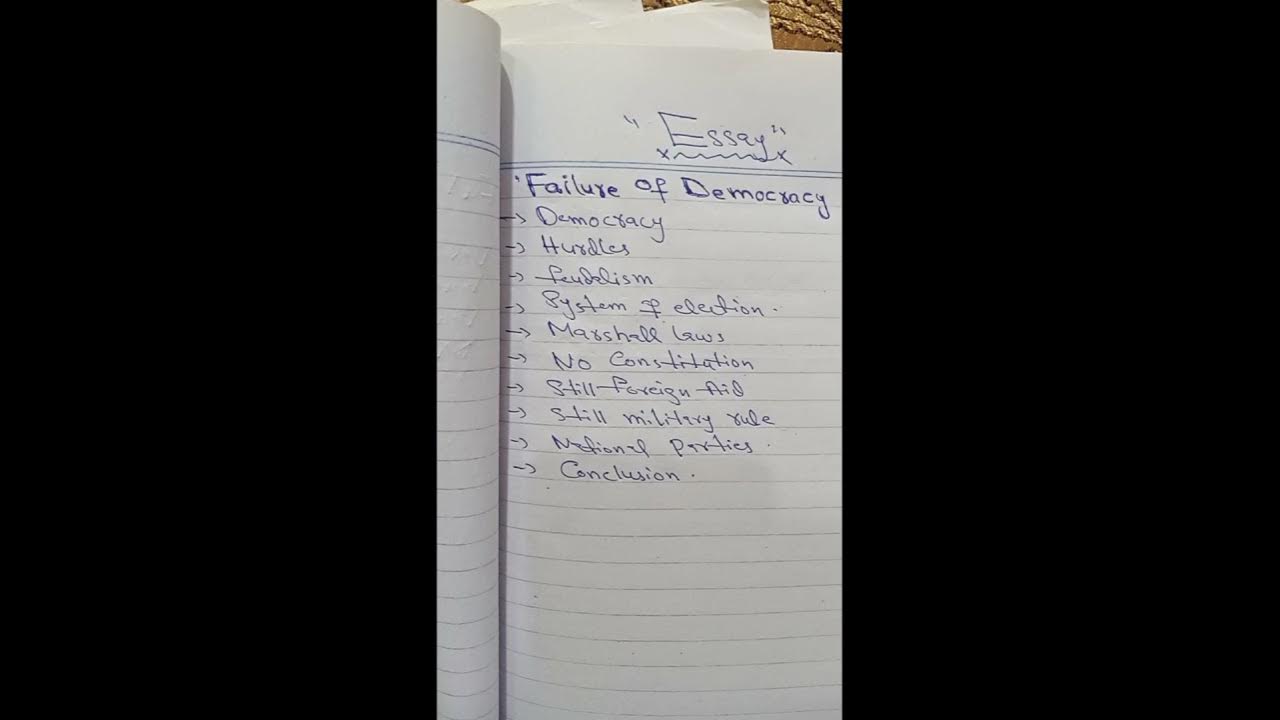 "Essay"
'Failure of Democracy
→ Democracy
→ Hurdles
→ feudalism
→ System of election.
→ Marshall laws
→ No Constitation
→ Still foreign Aid
→ Still military rule
→ National parties.
→ Conclusion.